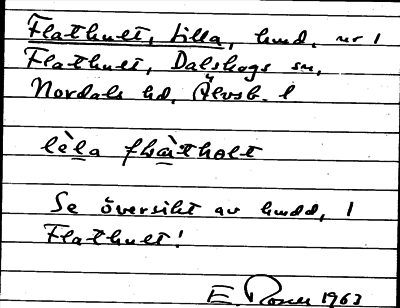 Flathult, Lilla, hmd, nr 1
Flathult, Dalskogs sn,
Nordals hd, Älvsb. l
lèla flàtholt
Se översikt av hmdd, 1
Flathult!
E. 1963